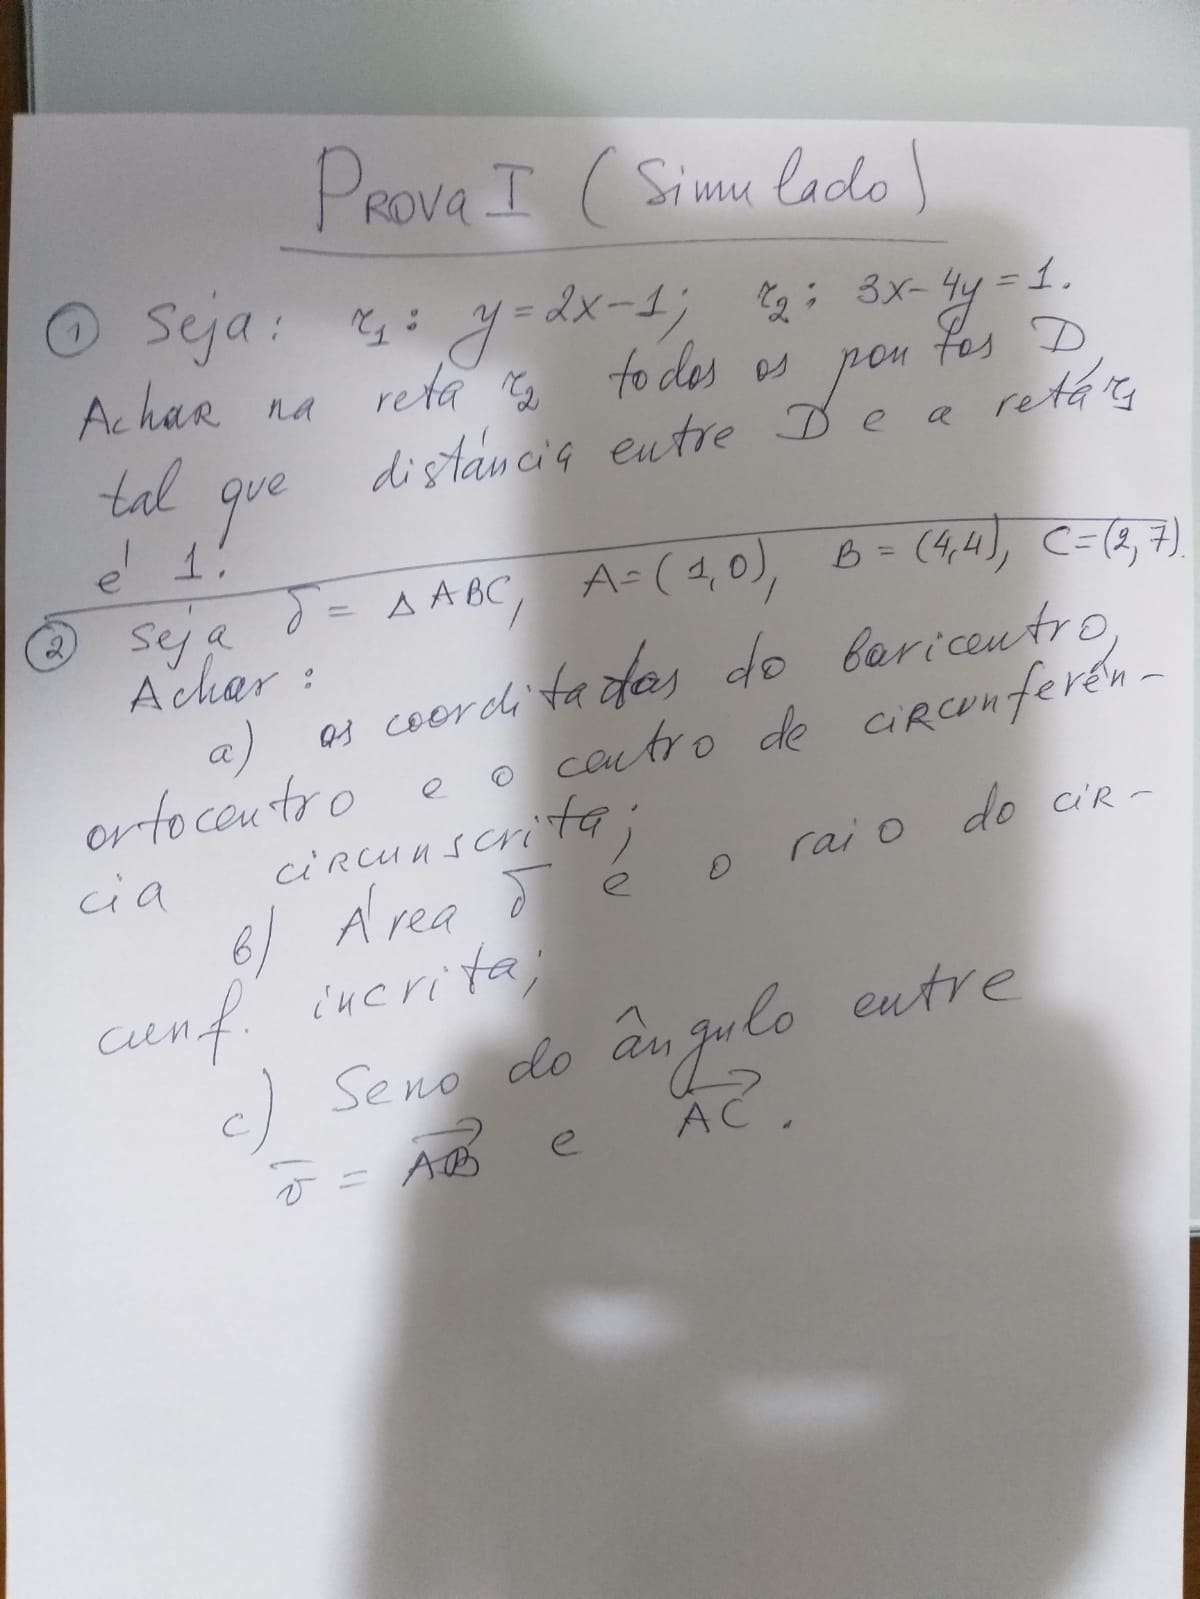 Prova I (Simulado)
① Seja: r₁: y=2x-1; r₂: 3x-4y=1.
Achar na reta r₂ todos os pontos D,
tal que distáncia entre D e a reta r₁
é 1.
② Seja δ = △ABC, A=(1,0), B=(4,4), C=(2,7).
Achar:
a) as coorditadas do baricentro,
ortocentro e o centro de circunferên-
cia circunscrita;
b) Área δ e o raio do cir-
cunf. incrita;
c) Seno do ângulo entre
v̅ = A⃗B⃗ e A⃗C⃗.